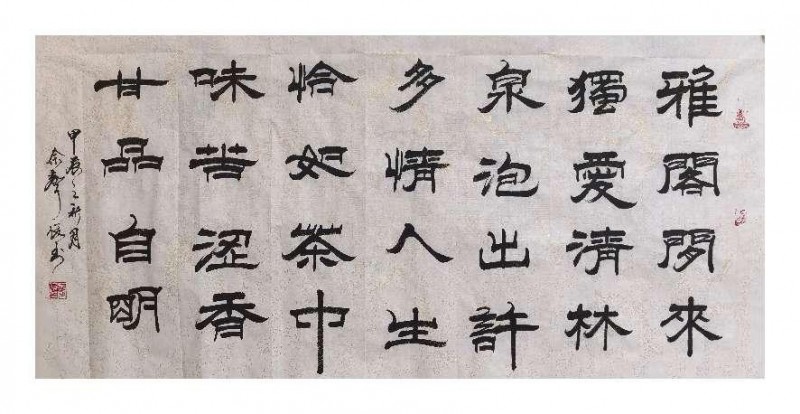 雅閣閒來
獨愛清林
泉泡出許
多情人生
恰如茶中
味苦澀香
甘品自明
甲辰之新月